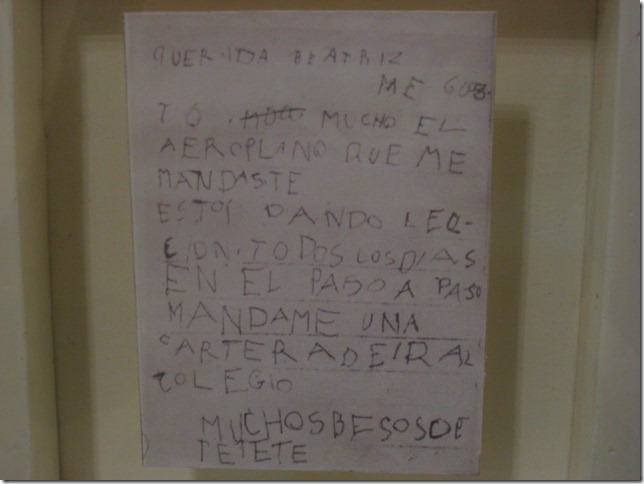 QUERIDA BEATRIZ
ME GUS-
TO MUCHO EL
AEROPLANO QUE ME
MANDASTE
ESTOY DANDO LEC-
CION. TODOS LOS DIAS
EN EL PASO A PASO
MANDAME UNA
CARTERA DE IR AL
COLEGIO
MUCHOS BESOS DE
TETETE